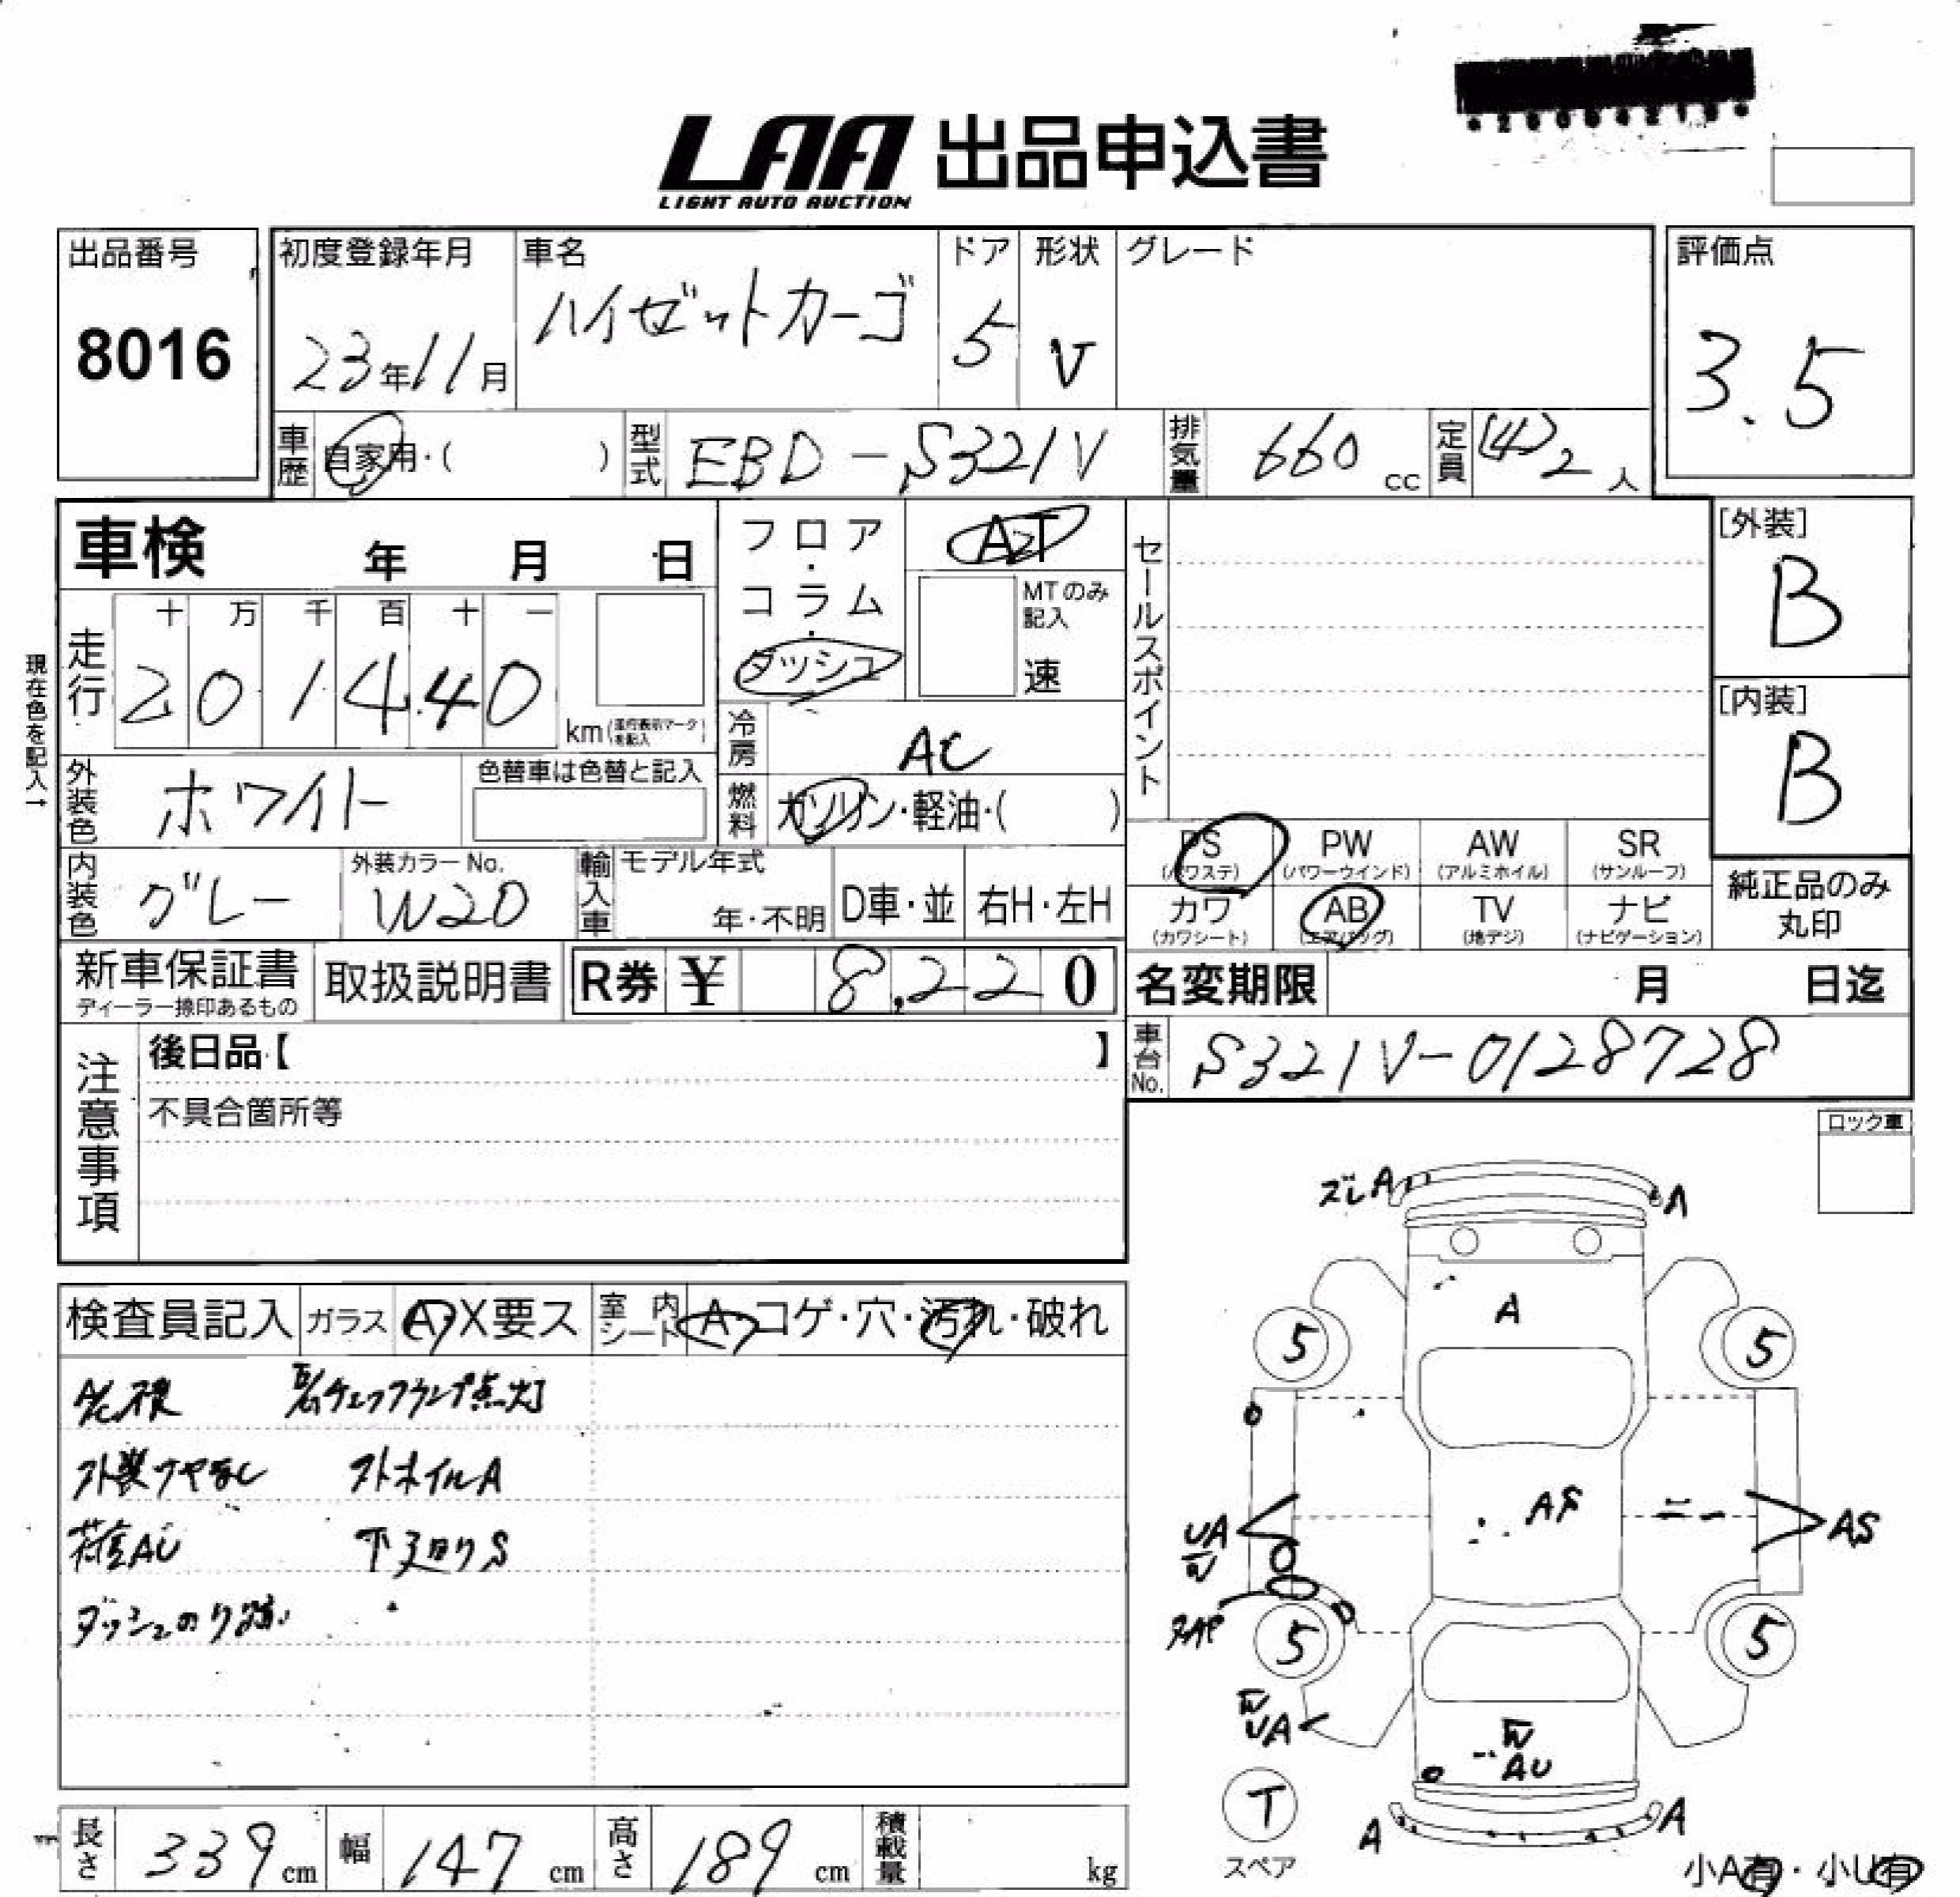 LAA 出品申込書
LIGHT AUTO AUCTION
出品番号
8016
初度登録年月
23年11月
車名
ハイゼットカーゴ
ドア
5
形状
V
グレード
評価点
3.5
車歴
自家用・( )
型式
EBD-S321V
排気量
660 cc
定員
(4)2 人
車検 年 月 日
フロア・コラム・ダッシュ
AT
MTのみ記入
速
セールスポイント
[外装]
B
[内装]
B
現在色を記入→
走行
十 万 千 百 十 一
2 0 1 4 4 0
km(走行表示マークを記入)
冷房
AC
燃料
ガソリン・軽油・( )
外装色
ホワイト
色替車は色替と記入
内装色
グレー
外装カラーNo.
W20
輸入車
モデル年式
年・不明
D車・並
右H・左H
PS
(パワステ)
PW
(パワーウインド)
AW
(アルミホイル)
SR
(サンルーフ)
カワ
(カワシート)
AB
(エアバッグ)
TV
(地デジ)
ナビ
(ナビゲーション)
純正品のみ
丸印
新車保証書
ディーラー捺印あるもの
取扱説明書
R券 ¥ 8,220
名変期限 月 日迄
車台No.
S321V-0128728
注意事項
後日品【 】
不具合箇所等
ロック車
検査員記入
ガラス
A・X要ス
室内シート
A・コゲ・穴・汚れ・破れ
チェックランプ点灯
外装ツヤなし
ホイルA
荷室AU
下廻りS
ダッシュのり跡
ズレA
A
A
5
5
AS
UA
AS
5
5
UA
AU
T
スペア
A
A
小A有・小U有
長さ
339 cm
幅
147 cm
高さ
189 cm
積載量
kg